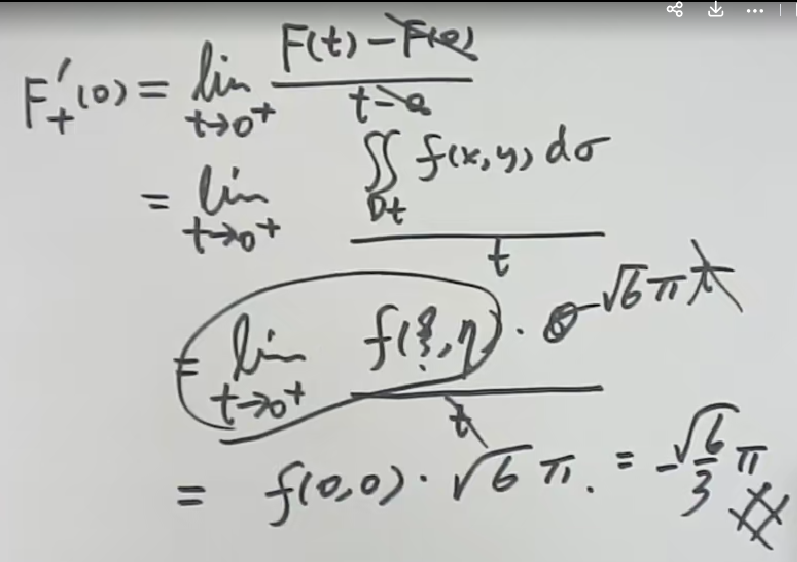 F₊′(0) = lim_{t→0⁺} (F(t) − F(0)) / (t − 0)
= lim_{t→0⁺} (∬_{Dt} f(x,y) dσ) / t
= lim_{t→0⁺} (f(ξ,η) · √6 π t) / t
= f(0,0) · √6 π. = −(√6/3) π